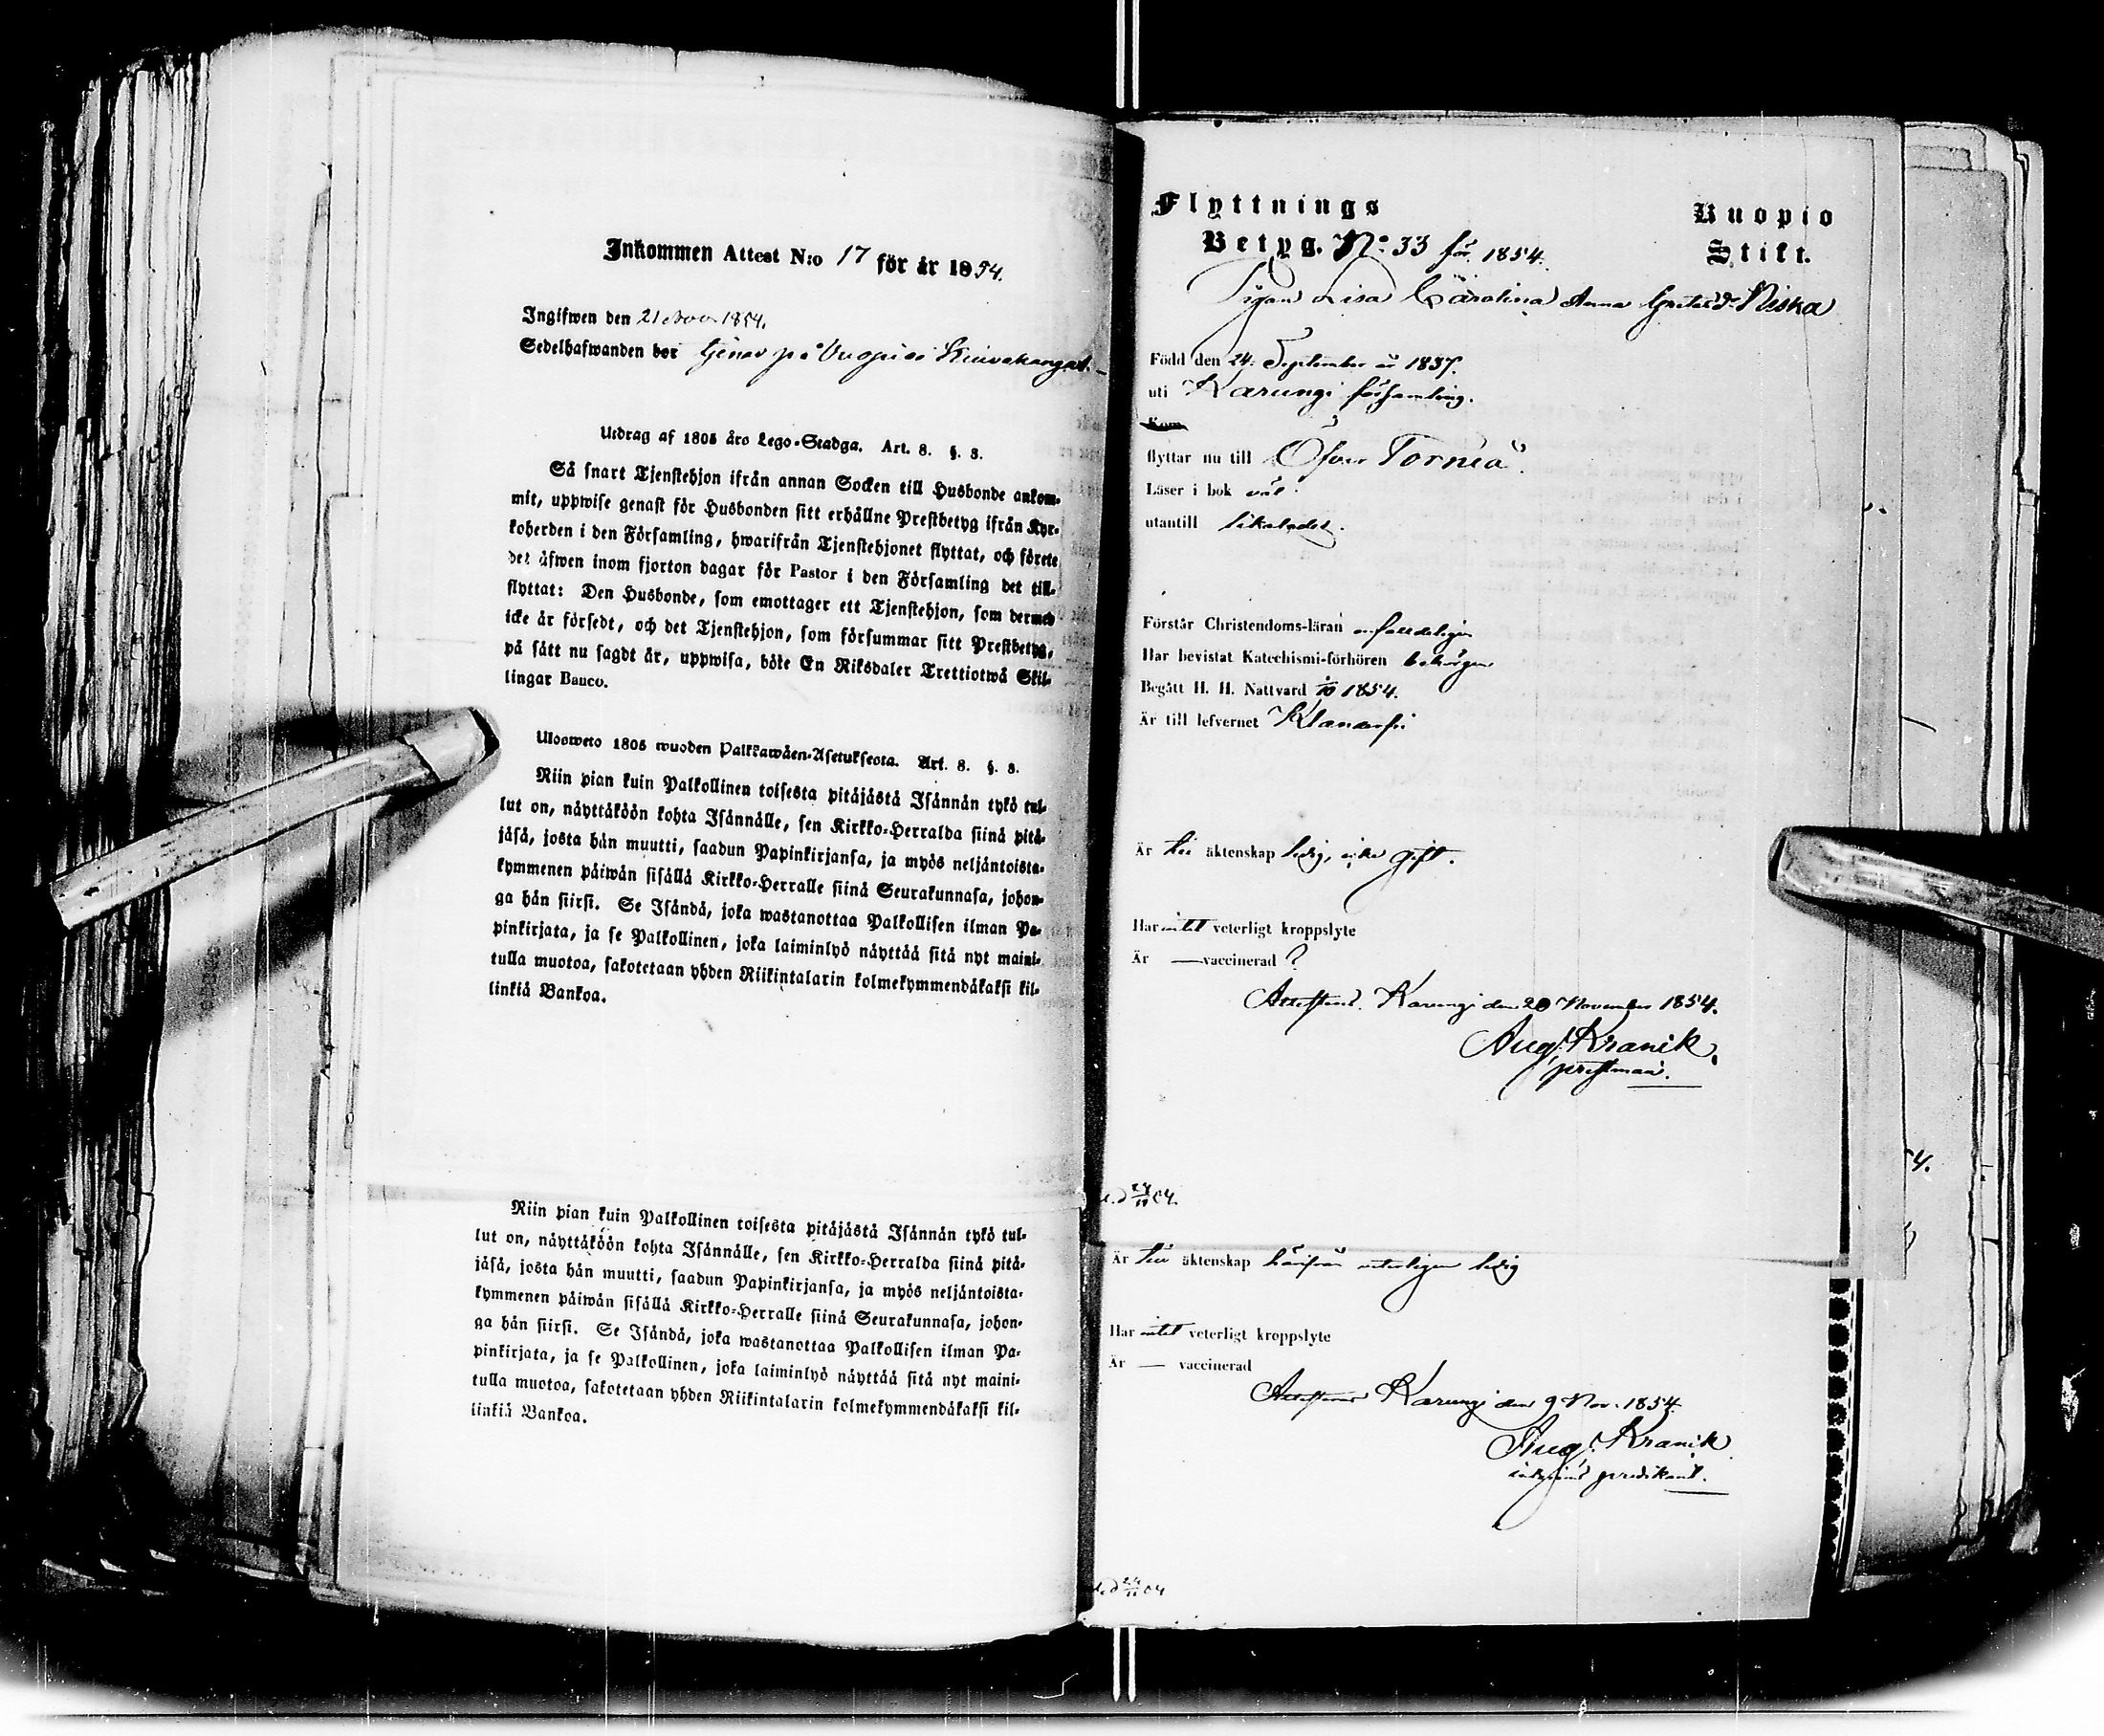 Inkommen Attest N:o 17 för år 1854.
Ingifwen den 21 Nov 1854.
Sedelhafwanden bor tjenar på Vuopio i Kuivakangas.
Utdrag af 1805 års Lego-Stadga. Art. 8. §. 8.
Så snart Tjenstehjon ifrån annan Socken till Husbonde ankom-
mit, uppwise genast för Husbonden sitt erhållne Prestbetyg ifrån Kyr-
koherden i den Församling, hwarifrån Tjenstehjonet flyttat, och förete
det äfwen inom fjorton dagar för Pastor i den Församling det till-
flyttat: Den Husbonde, som emottager ett Tjenstehjon, som dermed
icke är försedt, och det Tjenstehjon, som försummar sitt Prestbetyg,
på sätt nu sagdt är, uppwisa, böte En Riksdaler Trettiotwå Skil-
lingar Banco.
Ulosweto 1805 wuoden Palkkawäen-Asetuksesta. Art. 8. §. 8.
Niin pian kuin Palkollinen toisesta pitäjästä Isännän tykö tul-
lut on, näyttäköön kohta Isännälle, sen Kirkko-Herralda siinä pitä-
jäsä, josta hän muutti, saadun Papinkirjansa, ja myös neljäntoista-
kymmenen päiwän sisällä Kirkko-Herralle siinä Seurakunnasa, johon-
ga hän siirsi. Se Isändä, joka wastanottaa Palkollisen ilman Pa-
pinkirjata, ja se Palkollinen, joka laiminlyö näyttää sitä nyt maini-
tulla muotoa, sakotetaan yhden Riikintalarin kolmekymmendäkaksi kil-
linkiä Bankoa.
Niin pian kuin Palkollinen toisesta pitäjästä Isännän tykö tul-
lut on, näyttäköön kohta Isännälle, sen Kirkko-Herralda siinä pitä-
jäsä, josta hän muutti, saadun Papinkirjansa, ja myös neljäntoista-
kymmenen päiwän sisällä Kirkko-Herralle siinä Seurakunnasa, johon-
ga hän siirsi. Se Isändä, joka wastanottaa Palkollisen ilman Pa-
pinkirjata, ja se Palkollinen, joka laiminlyö näyttää sitä nyt maini-
tulla muotoa, sakotetaan yhden Riikintalarin kolmekymmendäkaksi kil-
linkiä Bankoa.
Flyttnings
Betyg. No 33 för 1854.
Kuopio
Stift.
Pigan Lisa Carolina Anna Gretas dr Niska
Född den 24 September år 1837.
uti Karungi församling.
Kom
flyttar nu till Öfver Torneå.
Läser i bok väl.
utantill likaledes.
Förstår Christendoms-läran enfaldeligen
Har bevistat Katechismi-förhören behörigen
Begått H. H. Nattvard 1/10 1854.
Är till lefvernet Klanderfri
Är till äktenskap ledig, icke gift.
Har intet veterligt kroppslyte
Är — vaccinerad ?
Attesterad. Karungi den 20 November 1854.
Aug. Kranik,
prestman.
Är till äktenskap härifrån veterligen ledig
Har intet veterligt kroppslyte
Är — vaccinerad
Attesteras Karungi den 9 Nov. 1854.
Aug. Kranik
predikant.